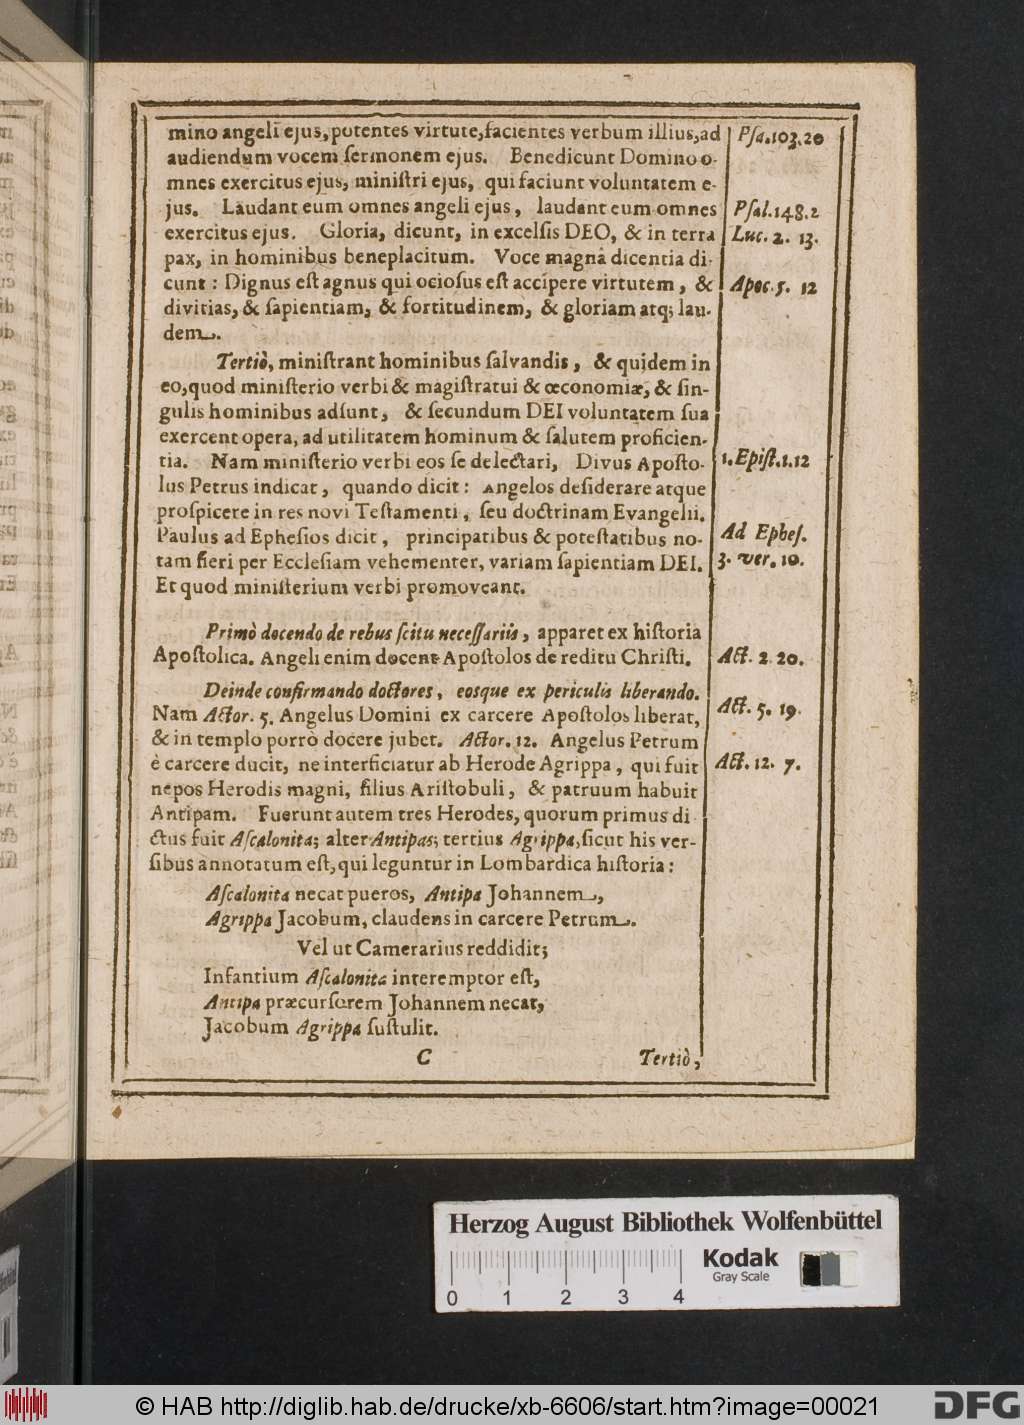 mino angeli ejus, potentes virtute, facientes verbum illius, ad
Psa. 103. 20
audiendum vocem ſermonem ejus. Benedicunt Domino o-
mnes exercitus ejus, miniſtri ejus, qui faciunt voluntatem e-
jus. Laudant eum omnes angeli ejus, laudent eum omnes
Pſal. 148. 2
exercitus ejus. Gloria, dicunt, in excelſis DEO, & in terra
Luc. 2. 13.
pax, in hominibus beneplacitum. Voce magnâ dicentia di-
cunt: Dignus eſt agnus qui ocioſus eſt accipere virtutem, &
Apoc. 5. 12
divitias, & ſapientiam, & fortitudinem, & gloriam atq; lau-
dem.
Tertiò, miniſtrant hominibus ſalvandis, & quidem in
eo, quod miniſterio verbi & magiſtratui & œconomiæ, & ſin-
gulis hominibus adſunt, & ſecundum DEI voluntatem ſua
exercent opera, ad utilitatem hominum & ſalutem proficien-
tia. Nam miniſterio verbi eos ſe delectari, Divus Apoſto-
1. Epiſt. 1. 12
lus Petrus indicat, quando dicit: Angelos deſiderare atque
proſpicere in res novi Teſtamenti, ſeu doctrinam Evangelii.
Paulus ad Epheſios dicit, principatibus & poteſtatibus no-
Ad Epheſ.
tam fieri per Eccleſiam vehementer, variam ſapientiam DEI.
3. ver. 10.
Et quod miniſterium verbi promoveant.
Primò docendo de rebus ſcitu neceſſariis, apparet ex hiſtoria
Apoſtolica. Angeli enim docent Apoſtolos de reditu Chriſti.
Act. 2. 20.
Deinde confirmando doctores, eosque ex periculis liberando.
Nam Actor. 5. Angelus Domini ex carcere Apoſtolos liberat,
Act. 5. 19.
& in templo porrò docere jubet. Actor. 12. Angelus Petrum
è carcere ducit, ne interficiatur ab Herode Agrippa, qui fuit
Act. 12. 7.
nepos Herodis magni, filius Ariſtobuli, & patruum habuit
Antipam. Fuerunt autem tres Herodes, quorum primus di-
ctus fuit Aſcalonita; alter Antipas; tertius Agrippa, ſicut his ver-
ſibus annotatum eſt, qui leguntur in Lombardica hiſtoria:
Aſcalonita necat pueros, Antipa Johannem,
Agrippa Jacobum, claudens in carcere Petrum.
Vel ut Camerarius reddidit;
Infantium Aſcalonita interemptor eſt,
Antipa præcurſorem Johannem necat,
Jacobum Agrippa ſuſtulit.
C
Tertiò,
Herzog August Bibliothek Wolfenbüttel
Kodak
Gray Scale
0 1 2 3 4
© HAB http://diglib.hab.de/drucke/xb-6606/start.htm?image=00021
DFG